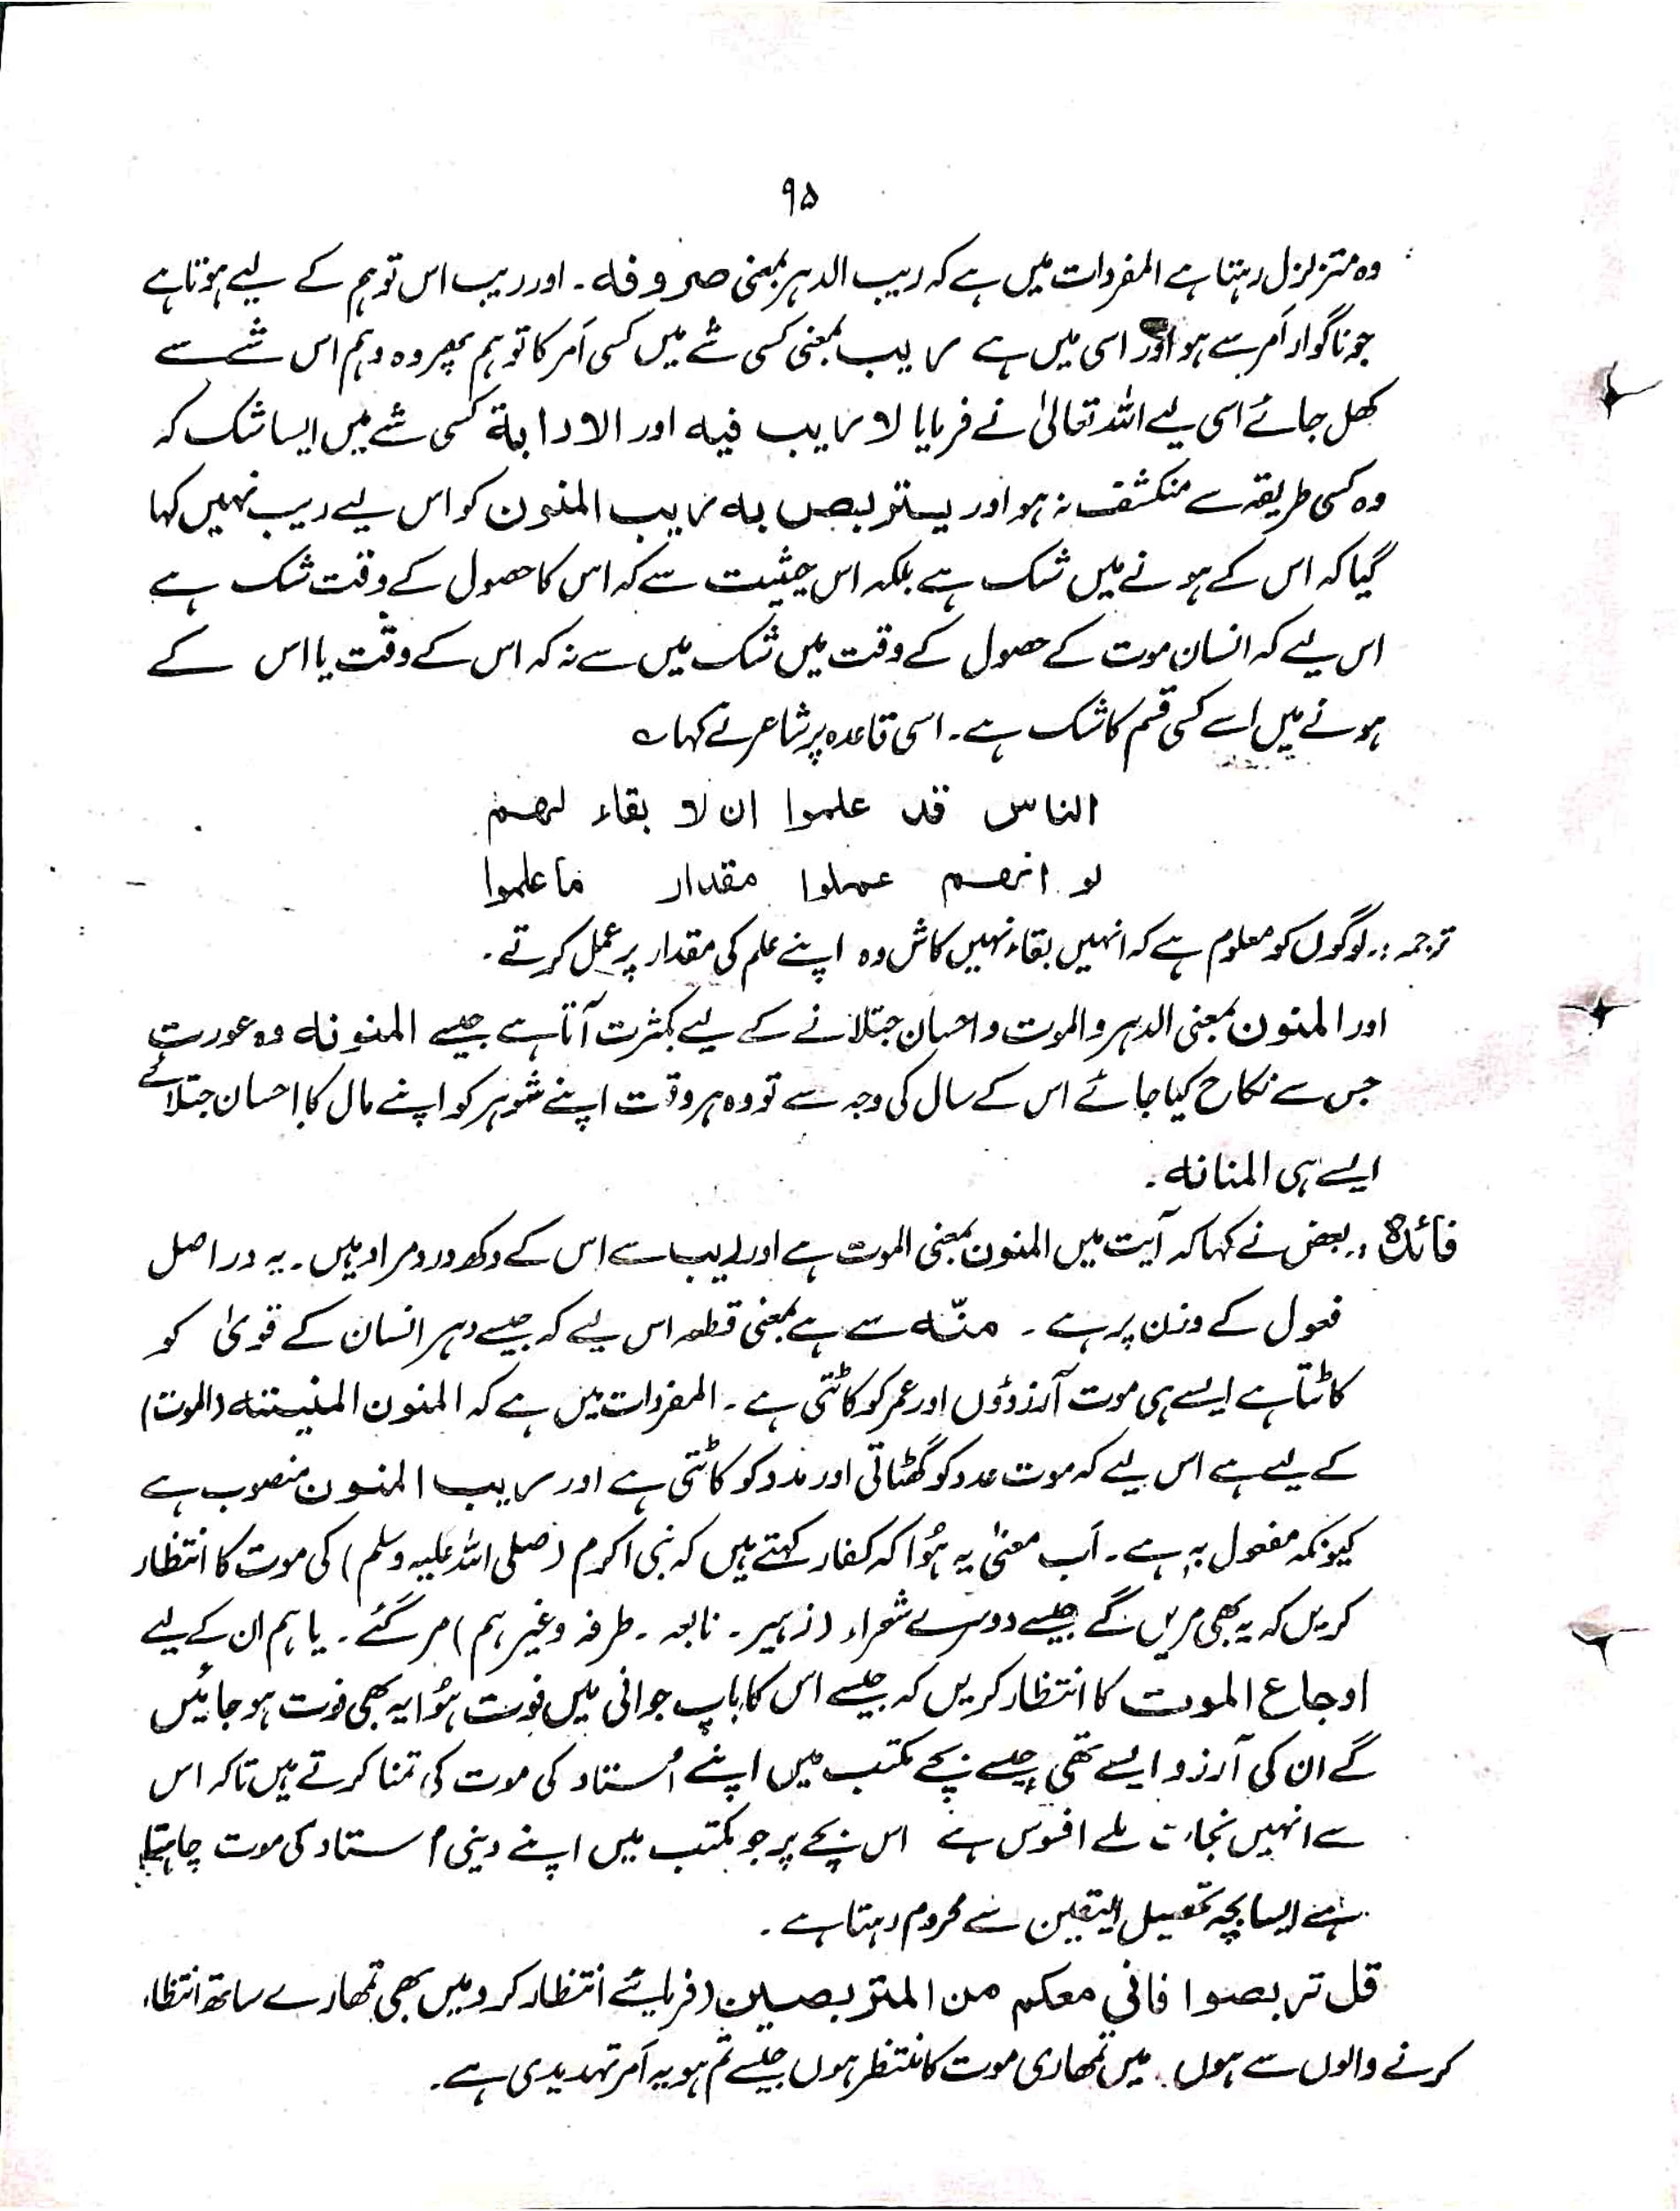 ۹۵
وہ متزلزل رہتا ہے المفردات میں ہے کہ ریب الدہر بمعنی صروفہ۔ اور ریب اس توہم کے لیے ہوتا ہے
جو ناگوار اَمر سے ہو اور اسی میں ہے ریب بمعنی کسی شے میں کسی اَمر کا توہم پھر وہ وہم اس شے سے
کھل جائے اسی لیے اللہ تعالیٰ نے فرمایا لا ریب فیہ اور الارابۃ کسی شے میں ایسا شک کہ
وہ کسی طریقہ سے منکشف نہ ہو اور یستربصں بہ ریب المنون کو اس لیے ریب نہیں کہا
گیا کہ اس کے ہونے میں شک ہے بلکہ اس حیثیت سے کہ اس کا حصول کے وقت شک ہے
اس لیے کہ انسان موت کے حصول کے وقت میں شک میں سے نہ کہ اس کے وقت یا اس کے
ہونے میں اسے کسی قسم کا شک ہے۔ اسی قاعدہ پر شاعر نے کہا ؎
الناس قد علموا ان لا بقاء لھم
لو انھم عملوا مقدار ما علموا
ترجمہ :۔ لوگوں کو معلوم ہے کہ انہیں بقاء نہیں کاش وہ اپنے علم کی مقدار پر عمل کرتے۔
اور المنون بمعنی الدہر والموت و احسان جتلانے کے لیے بکثرت آتا ہے جیسے المنونہ وہ عورت
جس سے نکاح کیا جائے اس کے سال کی وجہ سے تو وہ ہر وقت اپنے شوہر کو اپنے مال کا احسان جتلائے
ایسے ہی المنانہ۔
فائدہ :۔ بعض نے کہا کہ آیت میں المنون بمعنی الموت ہے اور ریب سے اس کے دکھ درد مراد ہیں۔ یہ در اصل
فعول کے وزن پر ہے۔ منّہ سے ہے بمعنی قطعہ اس لیے کہ جیسے دہر انسان کے قویٰ کو
کاٹتا ہے ایسے ہی موت آرزوؤں اور عمر کو کاٹتی ہے۔ المفردات میں ہے کہ المنون المنیتہ (الموت)
کے لیے ہے اس لیے کہ موت عدد کو گھٹاتی اور مدد کو کاٹتی ہے اور ریب المنون منصوب ہے
کیونکہ مفعول بہٖ ہے۔ اَب معنیٰ یہ ہُوا کہ کفار کہتے ہیں کہ نبی اکرم (صلی اللہ علیہ وسلم) کی موت کا انتظار
کریں کہ یہ بھی مریں گے جیسے دوسرے شعراء (زہیر۔ نابعہ۔ طرفہ وغیرہم) مر گئے۔ یا ہم ان کے لیے
اوجاع الموت کا انتظار کریں کہ جیسے اس کا باپ جوانی میں فوت ہُوا یہ بھی فوت ہو جائیں
گے ان کی آرزو ایسے تھی جیسے بچے مکتب میں اپنے اُستاد کی موت کی تمنا کرتے ہیں تاکہ اس
سے انہیں نجات ملے افسوس ہے اس بچے پر جو مکتب میں اپنے دینی اُستاد کی موت چاہتا
ہے ایسا بچہ تحصیل الیقین سے محروم رہتا ہے۔
قل تربصوا فانی معکم من المتربصین (فرمایئے انتظار کرو میں بھی تمھارے ساتھ انتظار
کرنے والوں سے ہوں۔ میں تمھاری موت کا منتظر ہوں جیسے تم ہو یہ اَمر تہدیدی ہے۔